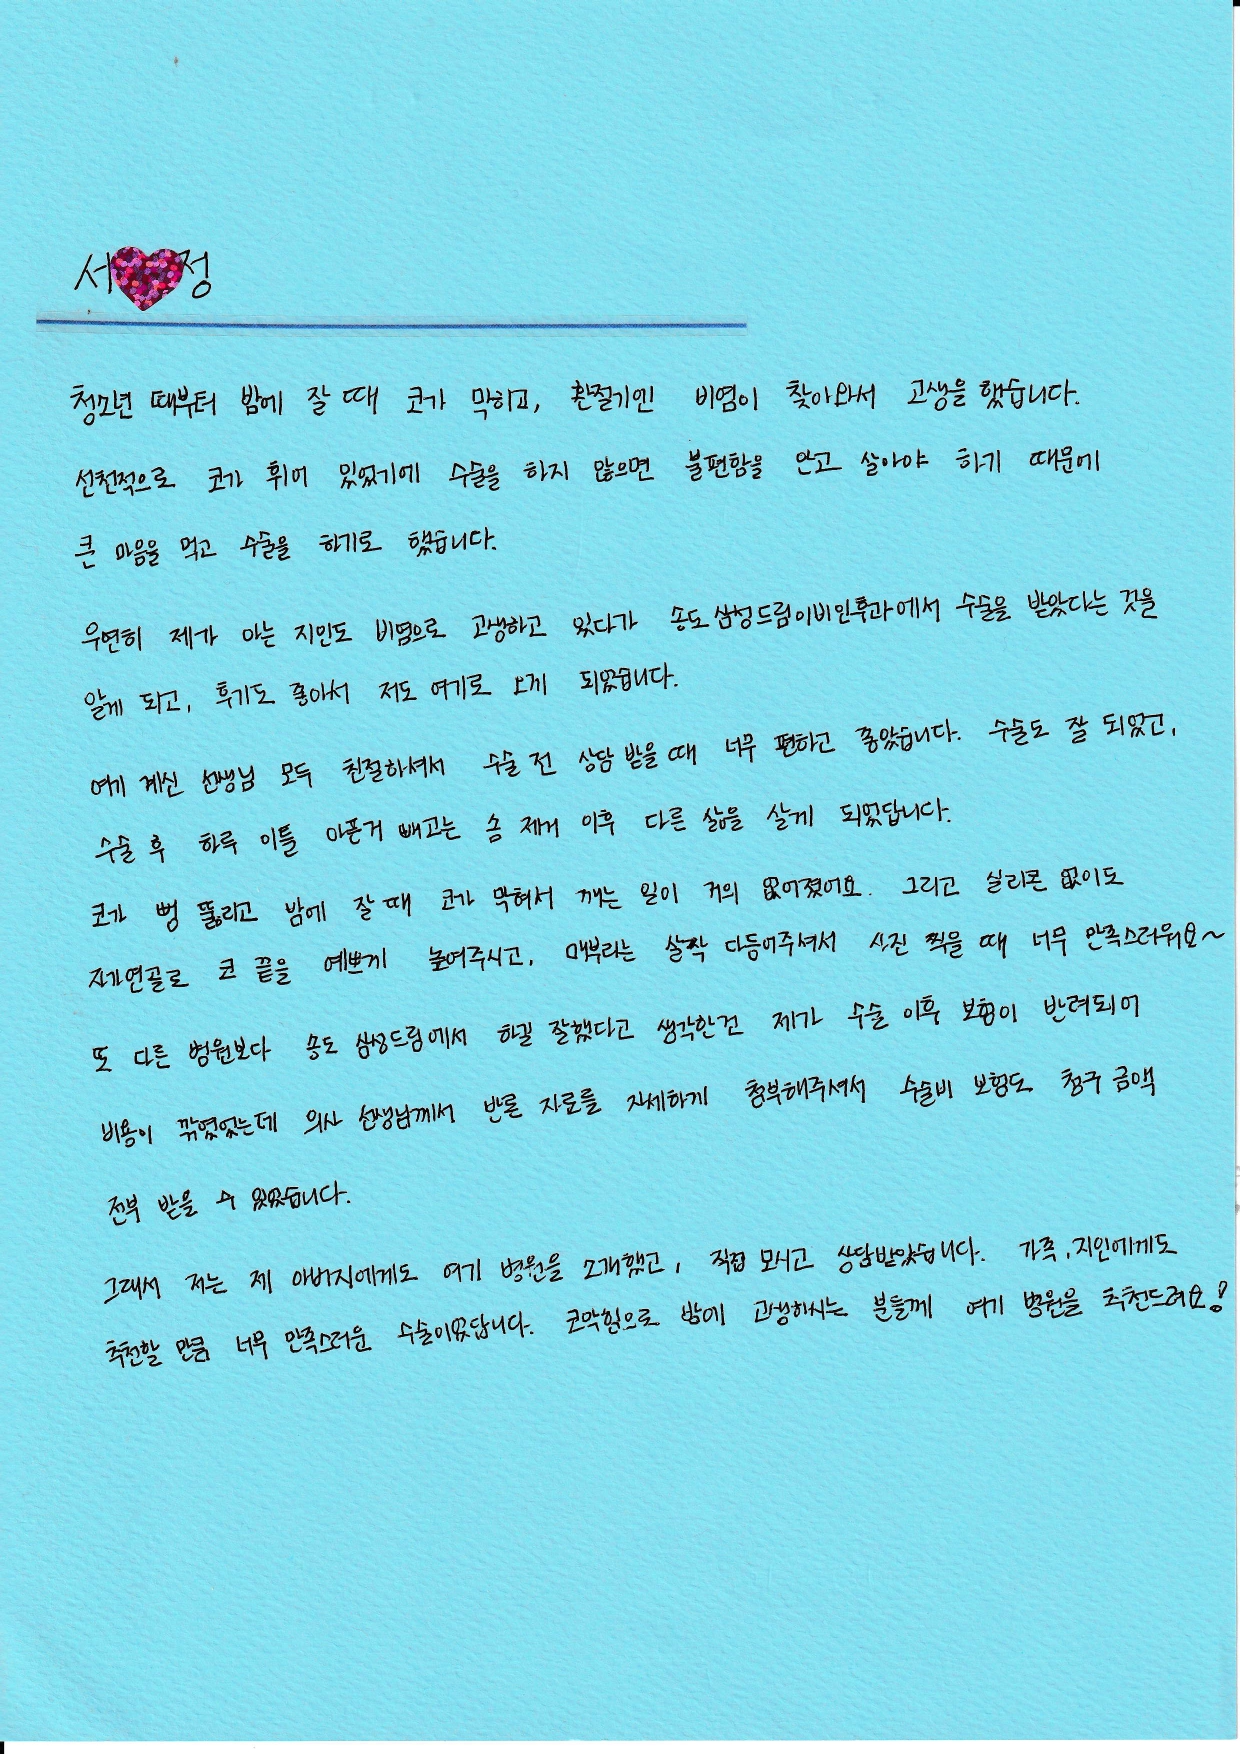 서♥정
청소년 때부터 밤에 잘 때 코가 막히고, 환절기엔 비염이 찾아와서 고생을 했습니다.
선천적으로 코가 휘어 있었기에 수술을 하지 않으면 불편함을 안고 살아야 하기 때문에
큰 마음을 먹고 수술을 하기로 했습니다.
우연히 제가 아는 지인도 비염으로 고생하고 있다가 송도삼성드림이비인후과에서 수술을 받았다는 것을
알게 되고, 후기도 좋아서 저도 여기로 오게 되었습니다.
여기 계신 선생님 모두 친절하셔서 수술 전 상담 받을 때 너무 편하고 좋았습니다. 수술도 잘 되었고,
수술 후 하루 이틀 아픈거 빼고는 솜 제거 이후 다른 삶을 살게 되었답니다.
코가 뻥 뚫리고 밤에 잘 때 코가 막혀서 깨는 일이 거의 없어졌어요. 그리고 실리콘 없이도
자가연골로 코 끝을 예쁘게 높여주시고, 매부리는 살짝 다듬어주셔서 사진 찍을 때 너무 만족스러워요~
또 다른 병원보다 송도 삼성드림에서 하길 잘했다고 생각한건 제가 수술 이후 보험이 반려되어
비용이 깎였었는데 의사 선생님께서 반론 자료를 자세하게 첨부해주셔서 수술비 보험도 청구 금액
전부 받을 수 있었습니다.
그래서 저는 제 아버지에게도 여기 병원을 소개했고, 직접 모시고 상담받았습니다. 가족, 지인에게도
추천할 만큼 너무 만족스러운 수술이었답니다. 코막힘으로 밤에 고생하시는 분들께 여기 병원을 추천드려요!